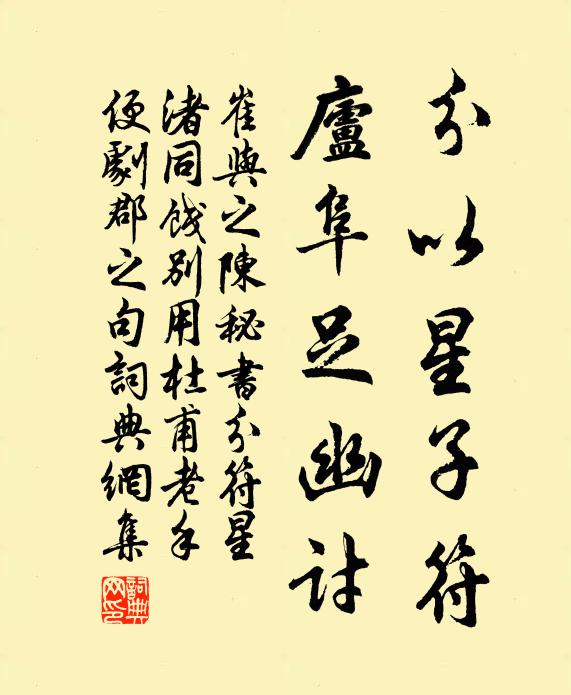 分以星子符
廬阜足幽討
崔與之陳秘書分符星
渚同餞別用杜甫老手
便劇郡之句詞典網集
詞典
网印